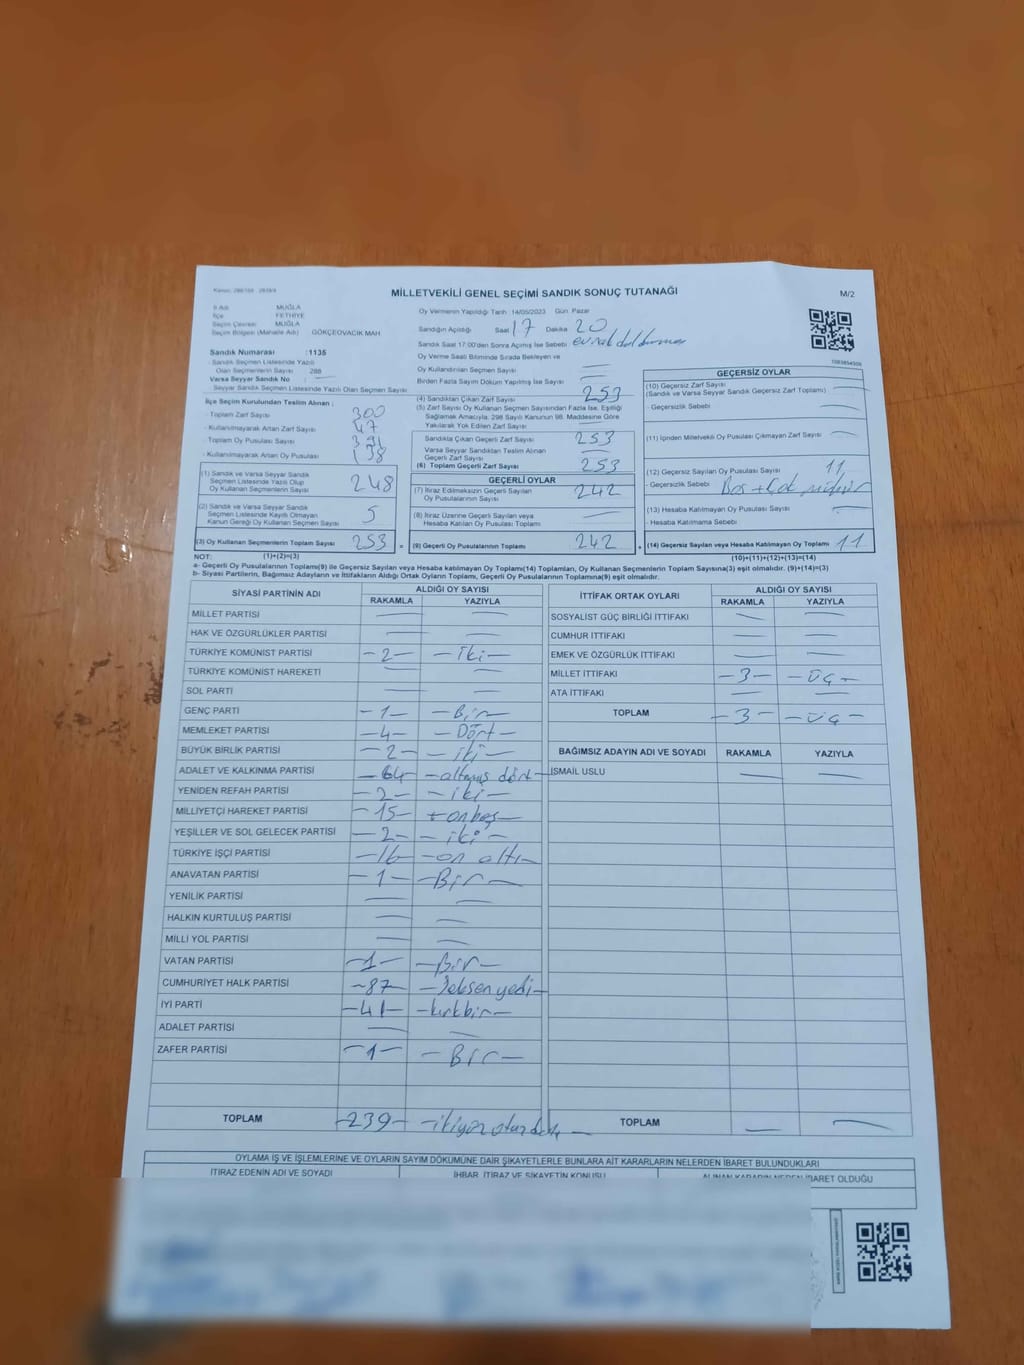 MİLLETVEKİLİ GENEL SEÇİMİ SANDIK SONUÇ TUTANAĞI
M/2
İl Adı MUĞLA
İlçe FETHİYE
Seçim Çevresi MUĞLA
Seçim Bölgesi (Mahalle Adı) GÖKÇEOVACIK MAH.
Sandık Numarası :1135
Sandık Seçmen Listesinde Yazılı
Olan Seçmenlerin Sayısı 288
Varsa Seyyar Sandık No
Seyyar Sandık Seçmen Listesinde Yazılı Olan Seçmen Sayısı
Oy Vermenin Yapıldığı Tarih 14/05/2023 Gün Pazar
Sandığın Açıldığı Saat 17 Dakika 20
Sandık Saat 17:00'den Sonra Açılmış İse Sebebi
Oy Verme Saati Bitiminde Sırada Bekleyen ve
Oy Kullandırılan Seçmen Sayısı
Birden Fazla Sayım Döküm Yapılmış İse Sayısı
İlçe Seçim Kurulundan Teslim Alınan :
- Toplam Zarf Sayısı 300
- Kullanılmayarak Artan Zarf Sayısı 47
- Toplam Oy Pusulası Sayısı
- Kullanılmayarak Artan Oy Pusulası
(1) Sandık ve Varsa Seyyar Sandık
Seçmen Listesinde Yazılı Olup
Oy Kullanan Seçmenlerin Sayısı 248
(2) Sandık ve Varsa Seyyar Sandık
Seçmen Listesinde Kayıtlı Olmayan
Kanun Gereği Oy Kullanan Seçmen Sayısı 5
(3) Oy Kullanan Seçmenlerin Toplam Sayısı 253
(4) Sandıktan Çıkan Zarf Sayısı 253
(5) Zarf Sayısı Oy Kullanan Seçmen Sayısından Fazla İse, Eşitliği
Sağlamak Amacıyla, 298 Sayılı Kanunun 98. Maddesine Göre
Yakılarak Yok Edilen Zarf Sayısı
Sandıkta Çıkan Geçerli Zarf Sayısı 253
Varsa Seyyar Sandıktan Teslim Alınan
Geçerli Zarf Sayısı
(6) Toplam Geçerli Zarf Sayısı 253
GEÇERLİ OYLAR
(7) İtiraz Edilmeksizin Geçerli Sayılan
Oy Pusulalarının Sayısı 242
(8) İtiraz Üzerine Geçerli Sayılan veya
Hesaba Katılan Oy Pusulası Toplamı
= (9) Geçerli Oy Pusulalarının Toplamı 242
GEÇERSİZ OYLAR
(10) Geçersiz Zarf Sayısı
(Sandık ve Varsa Seyyar Sandık Geçersiz Zarf Toplamı)
- Geçersizlik Sebebi
(11) İçinden Milletvekili Oy Pusulası Çıkmayan Zarf Sayısı
(12) Geçersiz Sayılan Oy Pusulası Sayısı 11
- Geçersizlik Sebebi Boş + Çok mühür
(13) Hesaba Katılmayan Oy Pusulası Sayısı
- Hesaba Katılmama Sebebi
+ (14) Geçersiz Sayılan veya Hesaba Katılmayan Oy Toplamı 11
NOT: (1)+(2)=(3) (10)+(11)+(12)+(13)=(14)
a- Geçerli Oy Pusulalarının Toplamı(9) ile Geçersiz Sayılan veya Hesaba katılmayan Oy Toplamı(14) Toplamları, Oy Kullanan Seçmenlerin Toplam Sayısına(3) eşit olmalıdır. (9)+(14)=(3)
b- Siyasi Partilerin, Bağımsız Adayların ve İttifakların Aldığı Ortak Oyların Toplamı, Geçerli Oy Pusulalarının Toplamına(9) eşit olmalıdır.
SİYASİ PARTİNİN ADI ALDIĞI OY SAYISI
RAKAMLA YAZIYLA
MİLLET PARTİSİ
HAK VE ÖZGÜRLÜKLER PARTİSİ
TÜRKİYE KOMÜNİST PARTİSİ -2- -iki-
TÜRKİYE KOMÜNİST HAREKETİ
SOL PARTİ
GENÇ PARTİ -1- -Bir-
MEMLEKET PARTİSİ -4- -Dört-
BÜYÜK BİRLİK PARTİSİ -2- -iki-
ADALET VE KALKINMA PARTİSİ -64- -altmış dört-
YENİDEN REFAH PARTİSİ -2- -iki-
MİLLİYETÇİ HAREKET PARTİSİ -15- -onbeş-
YEŞİLLER VE SOL GELECEK PARTİSİ -2- -iki-
TÜRKİYE İŞÇİ PARTİSİ -16- -on altı-
ANAVATAN PARTİSİ -1- -Bir-
YENİLİK PARTİSİ
HALKIN KURTULUŞ PARTİSİ
MİLLİ YOL PARTİSİ
VATAN PARTİSİ -1- -Bir-
CUMHURİYET HALK PARTİSİ -87- -Seksen yedi-
İYİ PARTİ -41- -kırkbir-
ADALET PARTİSİ
ZAFER PARTİSİ -1- -Bir-
TOPLAM -239-
İTTİFAK ORTAK OYLARI ALDIĞI OY SAYISI
RAKAMLA YAZIYLA
SOSYALİST GÜÇ BİRLİĞİ İTTİFAKI
CUMHUR İTTİFAKI
EMEK VE ÖZGÜRLÜK İTTİFAKI
MİLLET İTTİFAKI -3- -üç-
ATA İTTİFAKI
TOPLAM -3- -üç-
BAĞIMSIZ ADAYIN ADI VE SOYADI RAKAMLA YAZIYLA
İSMAİL USLU
TOPLAM
OYLAMA İŞ VE İŞLEMLERİNE VE OYLARIN SAYIM DÖKÜMÜNE DAİR ŞİKAYETLERLE BUNLARA AİT KARARLARIN NELERDEN İBARET BULUNDUKLARI
İTİRAZ EDENİN ADI VE SOYADI İHBAR, İTİRAZ VE ŞİKAYETİN KONUSU ALINAN KARARIN NEDEN İBARET OLDUĞU